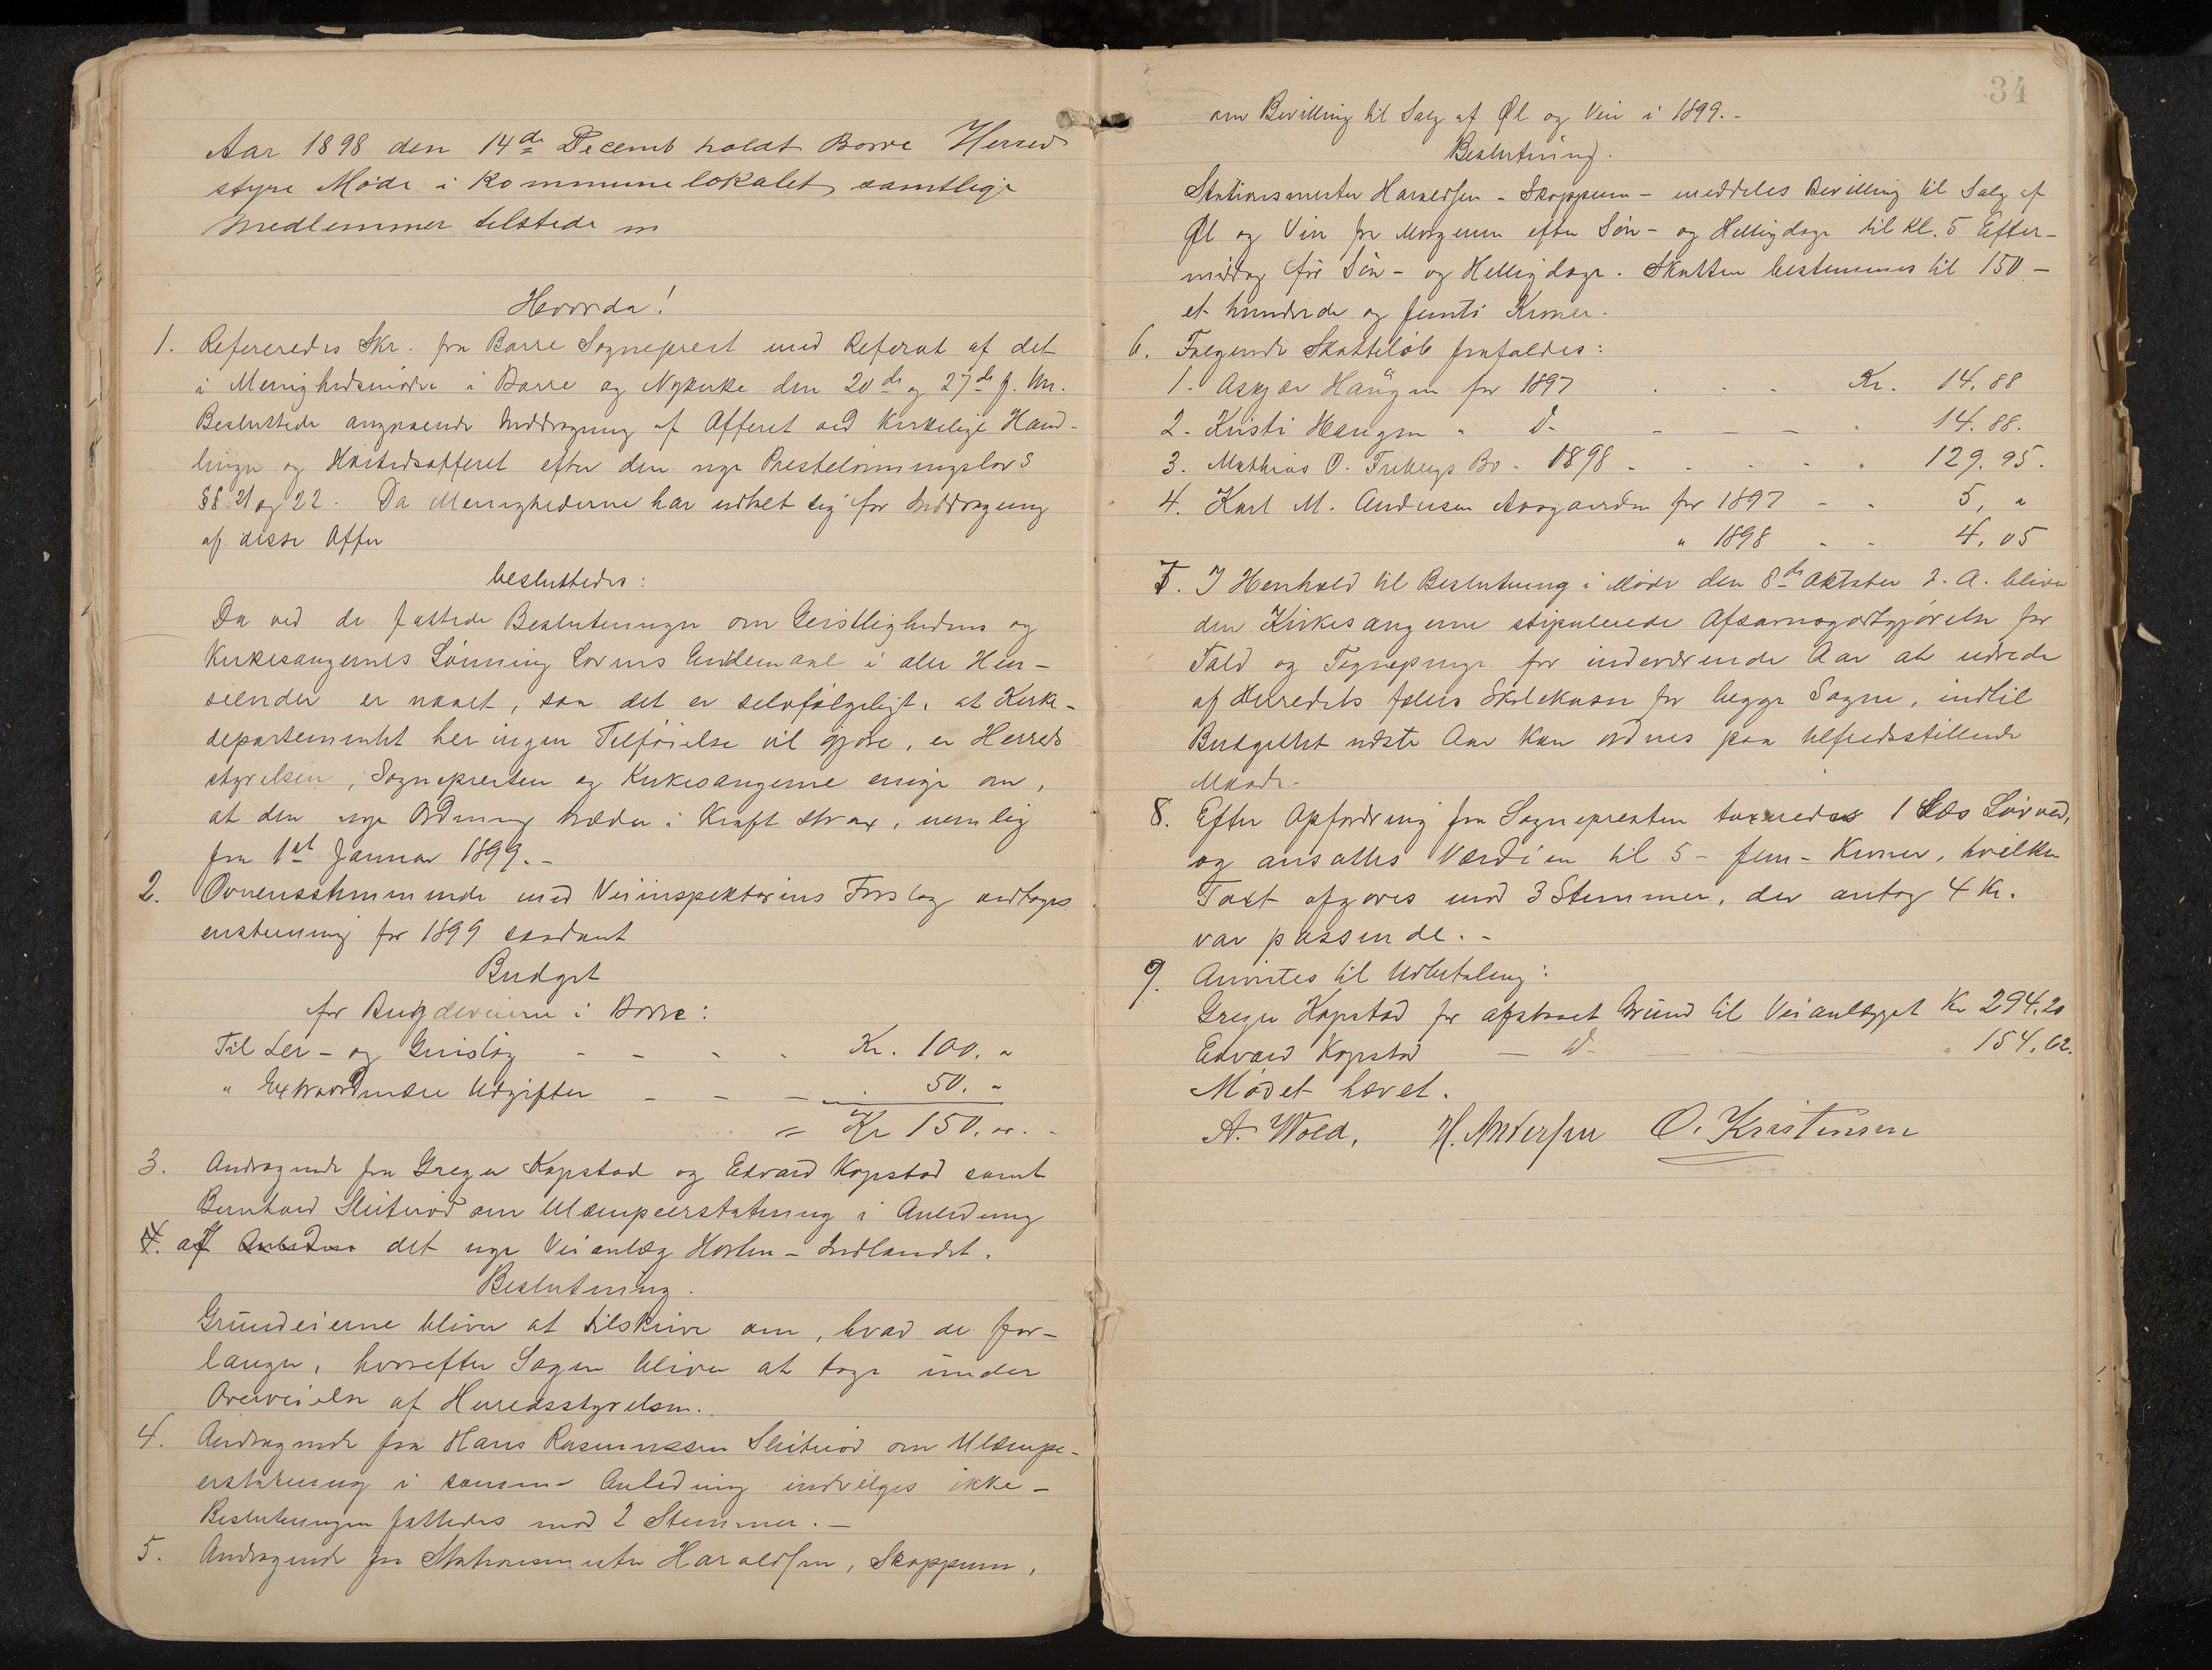 Aar 1898 den 14de Decemb holdt Borre Herreds
styre Møde i Kommunelokalet, samtlige
medlemmer tilstede
Hvorda!
1. Refereredes Skr. fra Borre Sogneprest med Referat af det
i Menighedsmøder i Borre og Nykirke den 20de og 27de f. Mn.
Besluttede angaaende Inddragning af Offeret ved Kirkelige Hand-
linger og Høitidsofferet efter den nye Prestelønningslovs
§§ 21 og 22. Da Menighederne har udtalt sig for Inddragning
af disse Offer
besluttedes:
Da ved de fattede Beslutninger om Geistlighedens og
Kirkesangernes Lønning Lovens Endemaal i alle Hen-
seender er naaet, saa det er selvfølgeligt, at Kirke-
departementet her ingen Tilføielse vil gjøre, er Herreds
styrelsen, Sognepresten og Kirkesangerne enige om,
at den nye Ordning træder i Kraft strax, nemlig
fra 1st Januar 1899. -
2. Overensstemmende med Veiinspektørens Forslag vedtages
enstemmig for 1899 saadant
Budget
for Bygdeveiene i Borre:
Til Ler- og Grusløg - - - - Kr. 100. "
" Extraordinære Udgifter - - - 50. "
= Kr 150. "
3. Andragende fra Greger Kopstad og Edvard Kopstad samt
Bernhard Skiterød om Ulæmpeerstatning i Anledning
af det nye Veianlæg Horten - Indlandet.
Beslutning.
Grundeierne bliver at tilskrive om, hvad de for-
langer, hvorefter Sagen bliver at tage under
Overveielse af Herredsstyrelsen.
4. Andragende fra Hans Rasmussen Skiterød om Ulæmpe-
erstatning i samme Anledning indvilges ikke -
Beslutningen fattedes mod 2 Stemmer. -
5. Andragende fra Stationsmester Haraldsen, Skoppum,
34
om Bevilling til Salg af Øl og Vin i 1899. -
Beslutning.
Stationsmester Haraldsen - Skoppum - meddeles Bevilling til Salg af
Øl og Vin fra Morgenen efter Søn- og Helligdage til Kl. 5 Efter-
middag før Søn- og Helligdage. Skatten bestemmes til 150 -
et hundrede og femti Kroner.
6. Følgende Skatteløb frafaldes:
1. Askjær Haugen for 1897 . . . Kr. 14.88
2. Kristi Haugen " d. - - - " 14.88.
3. Mathias O. Bo - 1898 - - - - " 129.95.
4. Karl M. Andersen for 1897 - - 5, "
" 1898 - - 4.05
7. I Henhold til Beslutning i Møde den 8de Oktober d. A. bliver
den Kirkesangerne stipulerede Afsavnsgodtgjørelse for
Told og Tegnepenge for indeværende Aar at udrede
af Herredets fælles Skolekasse for begge Sogne, indtil
Budgettet næste Aar kan ordnes paa tilfredsstillende
Maade.
8. Efter Opfordring fra Sognepresten taxeredes 1 Læs Løvved,
og ansattes Værdien til 5 - fem - Kroner, hvilken
Taxt afgøres mod 3 Stemmer, der antog 4 Kr.
var passende. -
9. Anvistes til Udbetaling:
Greger Kopstad for afstaaet Grund til Veianlægget Kr 294.20
Edvard Kopstad - d - " 154.62.
Mødet hævet.
A. Wold, H. Andersen O. Kristensen